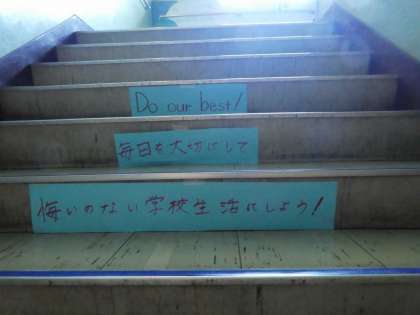 Do our best!
毎日を大切にして
悔いのない学校生活にしよう!